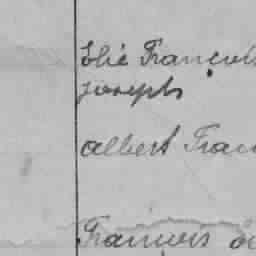 Elie François
Joseph
albert Fran
François